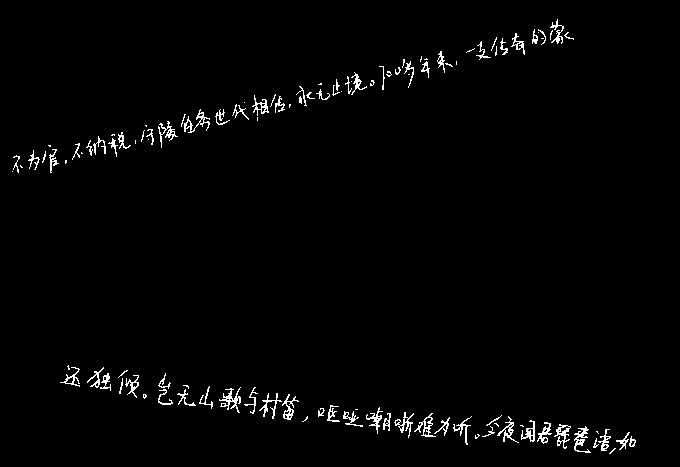 不为官，不纳税，守陵任务世代相传，永无止境。700多年来，一支传奇的蒙
还独倾。岂无山歌与村笛，呕哑嘲哳难为听。今夜闻君琵琶语，如